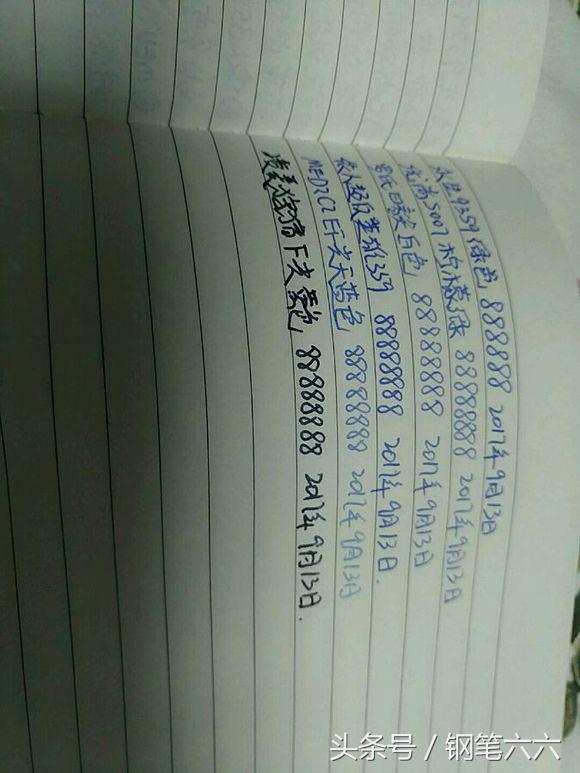 永生9359绿色 888888 2017年9月13日
优尚5007柠檬绿 88888888 2017年9月13日
英氏日暮尖百色 88888888 2017年9月13日
英雄359 88888888 2017年9月13日.
MF尖天蓝色 88888888 2017年9月13日
凌美狩猎F尖蓝色 88888888 2017年9月13日.
头条号 / 钢笔六六